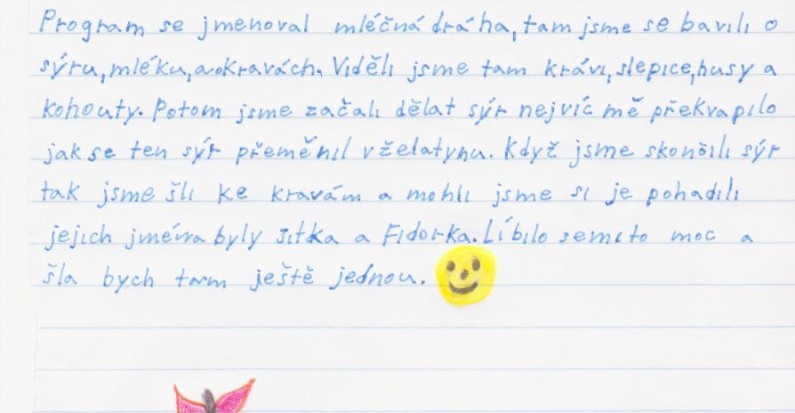 Program se jmenoval mléčná dráha, tam jsme se bavili o
sýru, mléku, a o kravách. Viděli jsme tam krávi, slepice, husy a
kohouty. Potom jsme začali dělat sýr nejvíc mě překvapilo
jak se ten sýr přeměnil v želatynu. Když jsme skončili sýr
tak jsme šli ke kravám a mohli jsme si je pohadili
jejich jména byly Jitka a Fidorka. Líbilo se mi to moc a
šla bych tam ještě jednou.